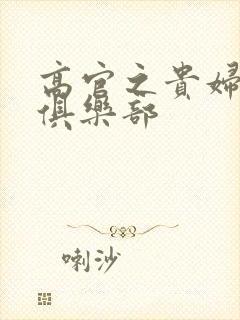 高官之貴婦
俱樂部
喇沙